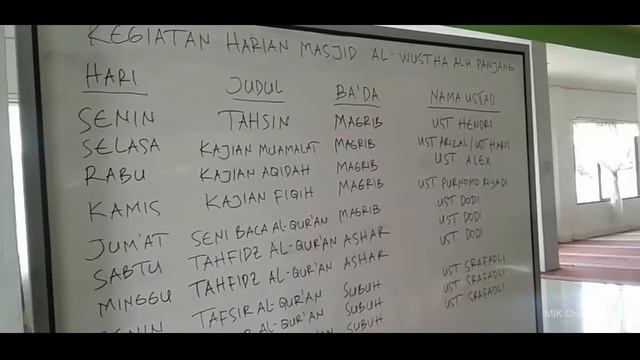 KEGIATAN HARIAN MASJID AL-WUSTHA ALH PANJANG
HARI JUDUL BA'DA NAMA USTAD
SENIN TAHSIN MAGRIB UST HENDRI
SELASA KAJIAN MUAMALAT MAGRIB UST ARIZAL/UST HARIS
RABU KAJIAN AQIDAH MAGRIB UST ALEX
KAMIS KAJIAN FIQIH MAGRIB UST PURNOMO RIYADI
JUM'AT SENI BACA AL-QUR'AN MAGRIB UST DODI
SABTU TAHFIDZ AL-QUR'AN ASHAR UST DODI
MINGGU TAHFIDZ AL-QUR'AN ASHAR UST DODI
SENIN TAFSIR AL-QUR'AN SUBUH UST SRAFADLI
AL-QUR'AN SUBUH UST SRAFADLI
SUBUH UST SRAFADLI
MIK